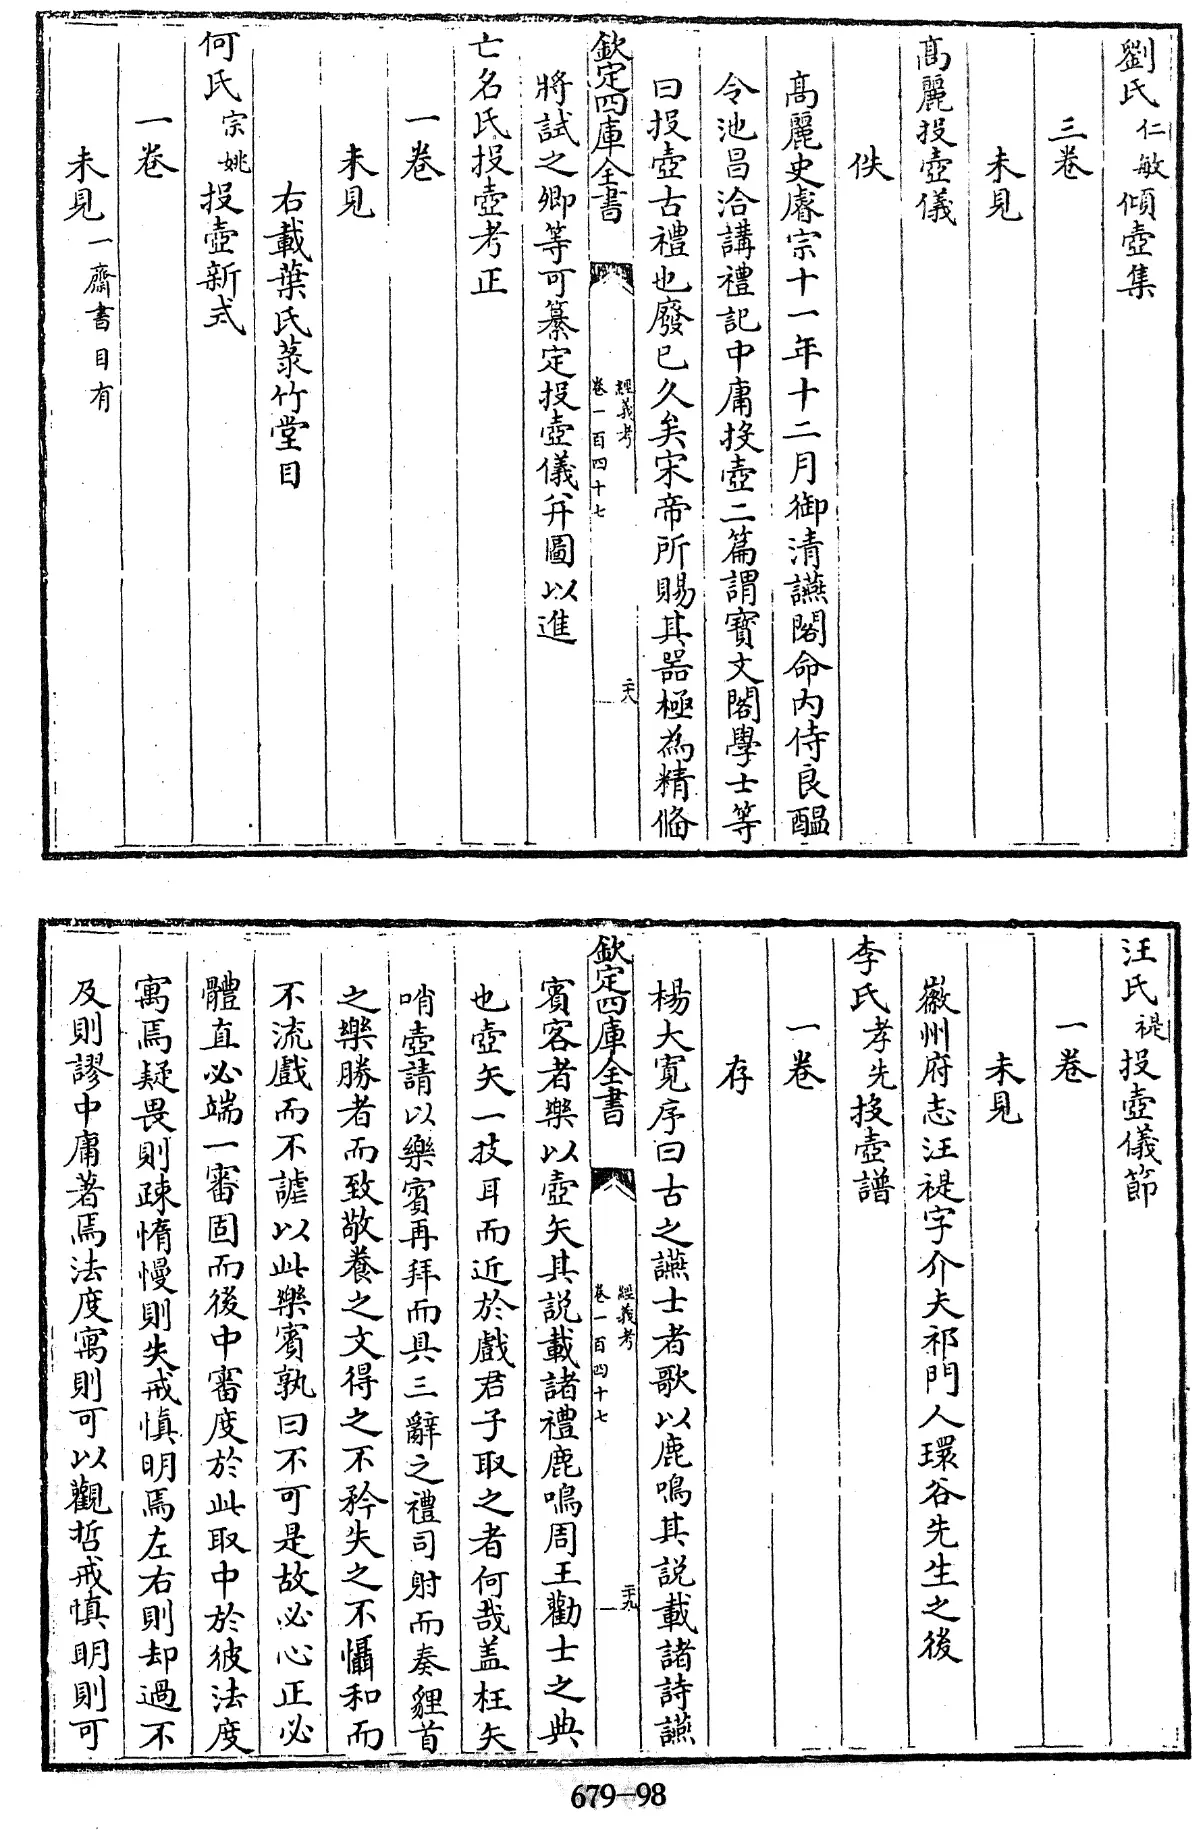 劉氏仁敏傾壺集
三卷
未見
高麗投壺儀
佚
高麗史睿宗十一年十二月御清讌閣命内侍良醖
令池昌洽講禮記中庸投壺二篇謂寶文閣學士等
曰投壺古禮也廢已久矣宋帝所賜其器極為精備
欽定四庫全書
經義考
卷一百四十七
二十八
將試之卿等可纂定投壺儀并圖以進
亡名氏投壺考正
一卷
未見
右載葉氏菉竹堂目
何氏宗姚投壺新式
一卷
未見一齋書目有
汪氏禔投壺儀節
一卷
未見
徽州府志汪禔字介夫祁門人環谷先生之後
李氏孝先投壺譜
一卷
存
楊大寛序曰古之讌士者歌以鹿鳴其説載諸詩讌
欽定四庫全書
經義考
卷一百四十七
二十九
賓客者樂以壺矢其説載諸禮鹿鳴周王勸士之典
也壺矢一技耳而近於戲君子取之者何哉盖枉矢
哨壺請以樂賓再拜而具三辭之禮司射而奏貍首
之樂勝者而致敬養之文得之不矜失之不懾和而
不流戲而不謔以此樂賓孰曰不可是故必心正必
體直必端一審固而後中審度於此取中於彼法度
寓焉疑畏則疎惰慢則失戒慎明焉左右則却過不
及則謬中庸著焉法度寓則可以觀哲戒慎明則可
679-98